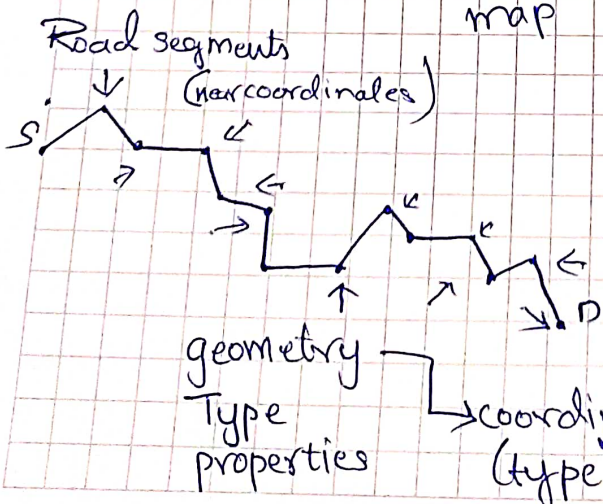 map
Road segments
(new coordinates)
S
D
geometry
Type
properties
coordi
(type